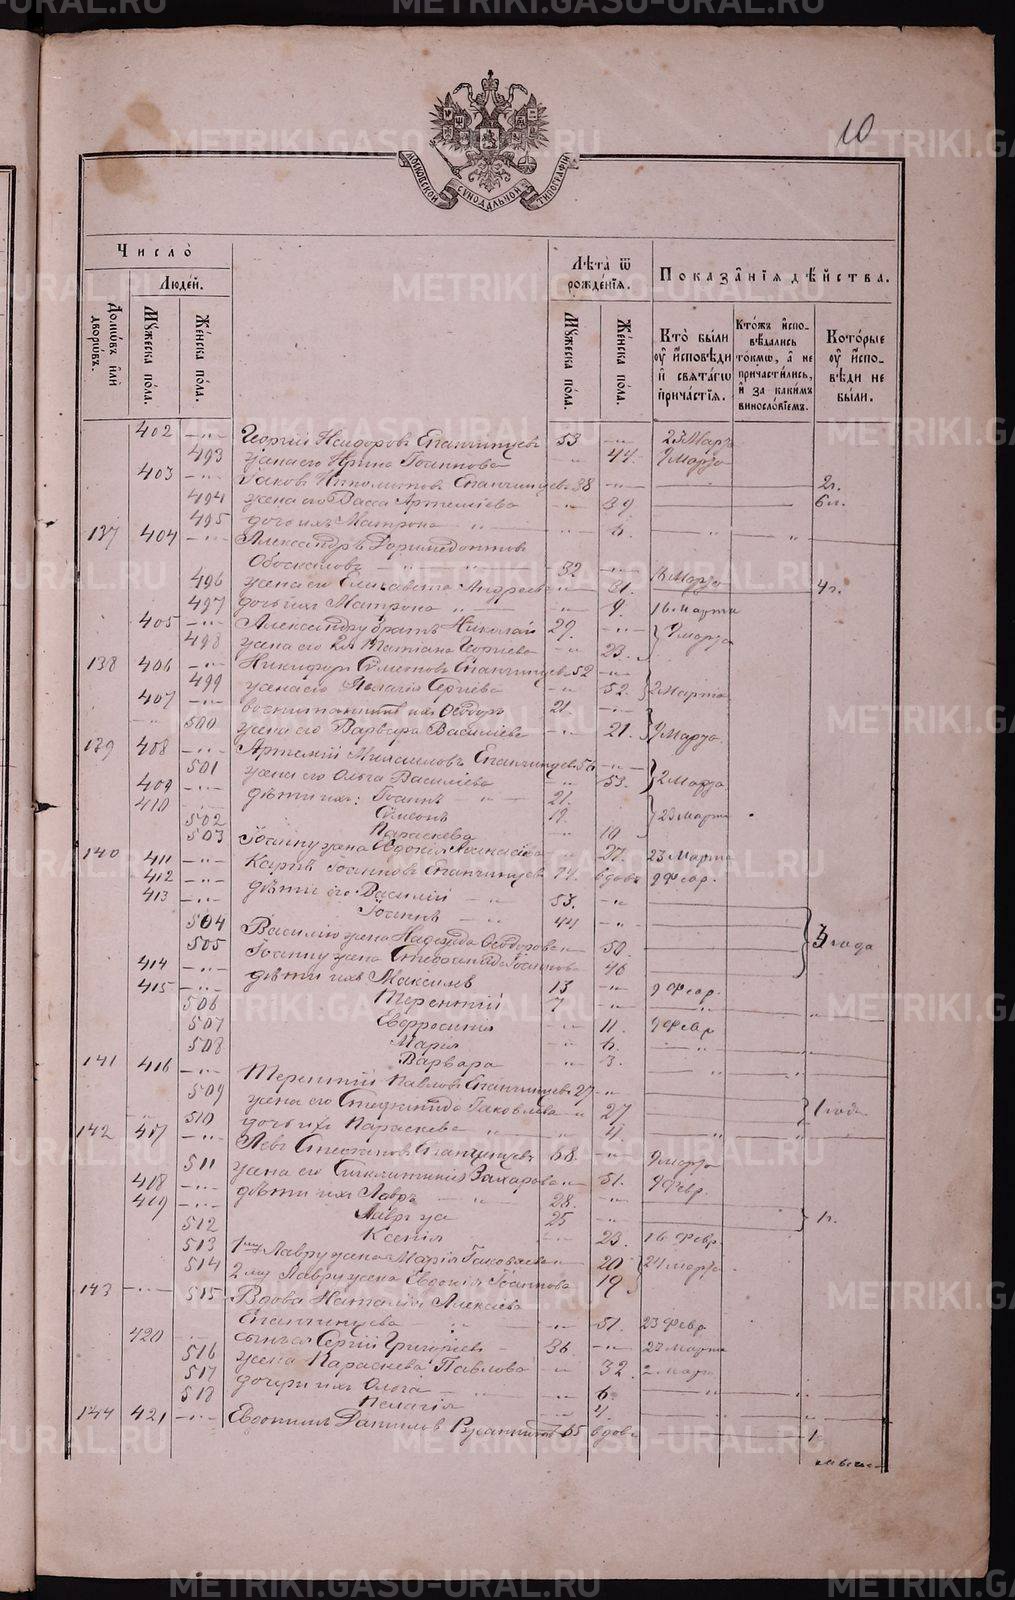 METRIKI.GASO-URAL.RU
10
МОСКОВСКОЙ СУНОДАЛЬНОЙ ТИПОГРАФІИ
Число̀
Людей.
Домѡвъ и҆лѝ дворѡвъ.
Мꙋжеска пола.
Женска пола.
Лѣта ѿ рожденїѧ.
Мꙋжеска пола.
Женска пола.
Показанїѧ дѣйства.
Кто̀ были оу҆ исповѣди и҆ свѧтагѡ причастїѧ.
Ктожъ исповѣдались токмѡ, а҆ не причастились, и҆ за какимъ винословїемъ.
Которые оу҆ исповѣди не были.
402 -"- Георгій Исидоровъ Епанчинцевъ 53 -"- 23 Мар.
493 жена его Ирина Іоаннова -"- 44. 9 Марта
403 -"- Іаковъ Епанчинцевъ 38 -"- 2 г.
494 жена его Васса Артеміева -"- 39. 6 л.
495 дочь ихъ Матрона -"- 6.
137 404 -"- Александръ
32 -"-
496 жена его Елисавета Андреева -"- 31. Марта 4 г.
497 дочь ихъ Матрона -"- 9. 16 Марта
405 -"- Александру братъ Николай 29. -"- 9 Марта
498 жена его 2 бр. Татіана Георгіева -"- 23.
138 406 -"- Никифоръ Сумеоновъ Епанчинцевъ 52 -"-
499 жена его Пелагія Сергіева -"- 52. 2 Марта
407 -"- воспитанникъ ихъ Ѳеодоръ 21. -"-
500 жена его Варвара Василіева -"- 21. 9 Марта.
139 408 -"- Артемій Михаиловъ Епанчинцевъ 56 -"-
501 жена его Ольга Василіева -"- 53. 2 Марта.
409 -"- дѣти ихъ: Іоаннъ 21.
410 Сумеонъ 19. 23 Марта
502 Параскева 10
503 Іоанну жена Евдокія -"- 27. 23 Марта
140 411 -"- Карпъ Іоанновъ Епанчинцевъ 74. вдовъ 9 Фев.
412 -"- дѣти его Василій 53. -"-
413 -"- Іоаннъ 44 -"- 3 года
504 Василію жена Надежда Ѳеодорова -"- 50.
505 Іоанну жена Стефанида Іоаннова 46
414 -"- дѣти ихъ Максимъ 13 -"- 9 Февр.
415 -"- Терентій 7 -"-
506 Евфросинія -"- 11. 9 Февр
507 Марія -"- 6.
508 Варвара " 3.
141 416 -"- Терентій Павловъ Епанчинцевъ 27 -"-
509 жена его Стефанида Іаковлева " 27 1 годъ
510 дочь ихъ Параскева " 4
142 417 -"- Левъ Стефановъ Епанчинцевъ 58. -"- 9 Марта
511 жена его Синклитикія Захарова -"- 51. 9 Февр.
418 -"- дѣти ихъ Лавръ 28. -"-
419 -"- Лавръ 25 -"- 1 г.
512 Ксенія 23. 16 Февр.
513 1му Лавру жена Марія Іаковлева 20 24 Марта
514 2му Лавру жена Евдокія Іоаннова 19
143 -"- 515 Вдова Наталія Алексіева
Епанчинцева -"- 51. 23 Февр
420 -"- сынъ ея Сергій Григоріевъ 36. -"- 23 Марта
516 жена Параскева Павлова -"- 32. 2 Март
517 дочери ихъ Ольга 6
518 Пелагія 4.
144 421 -"- Евдокимъ Даниловъ 65 вдовъ 1 г.